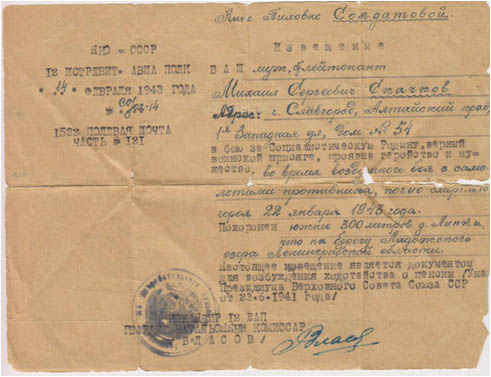 Солдатовой.
НКО - СССР
12 ИСТРЕБИТ. АВИА ПОЛК
" 14 " ФЕВРАЛЯ 1943 ГОДА
№ 04-14
1522 ПОЛЕВАЯ ПОЧТА
ЧАСТЬ № 121
Извещение
ВАШ муж, лейтенант
Михаил Сергеевич Скачков
Адрес: г. Славгород, Алтайский край,
1я Западная ул, Дом № 54
в бою за Социалистическую Родину, верный
воинской присяге, проявив геройство и му-
жество, во время воздушного боя с само-
летами противника, погиб смертью
героя 22 января 1943 года.
Похоронен южнее 500 метров д. Липки,
что на берегу Ладожского
озера Ленинградской области.
Настоящее извещение является документом
для возбуждения ходотайства о пенсии /Указ
Президиума Верховного Совета Союза ССР
от 23.6.1941 года/
КОМАНДИР 12 ИАП
КОМИССАР
/ВЛАСОВ/
Влас